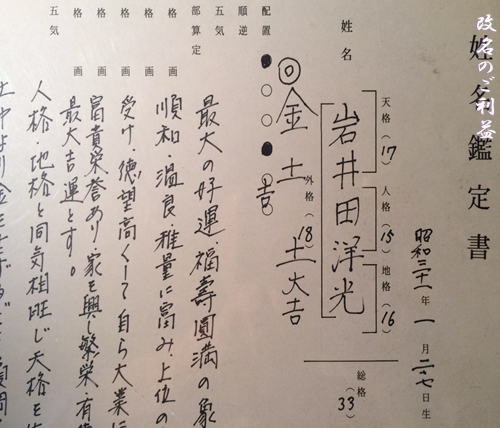 改名のご利益
姓名鑑定書
昭和三十一年一月二七日生
天格(17)
人格(15)
地格(16)
総格(33)
姓名
岩井田洋光
外格(18)
◎金土土大吉
配置●○○●○吉
順逆
五気
部算定
格画
格画
格画
格画
五気
最大の好運、福壽圓満の象
順和・温良・雅量に富み、上位の
受け、徳望高くして自ら大業に
富貴栄誉あり、家を興し繁栄、有
最大吉運とす。
人格・地格と同気相旺じ天格を
土中より金を